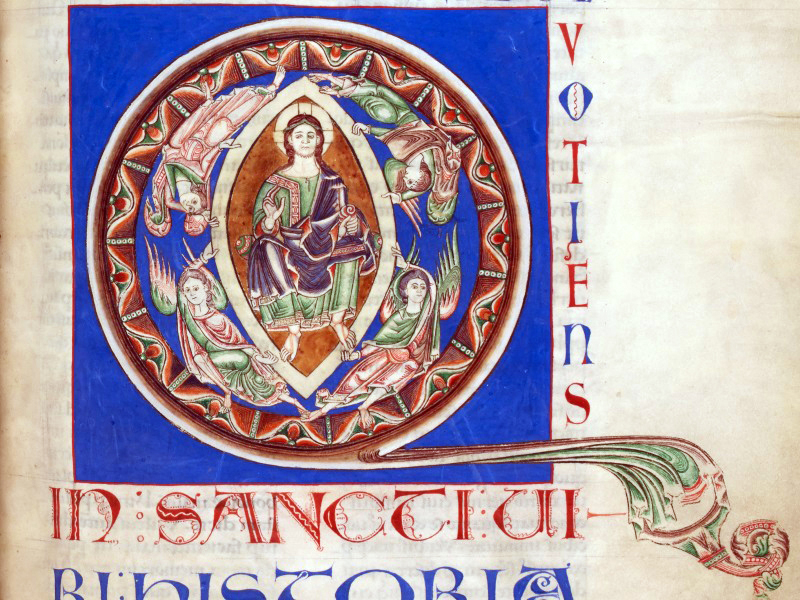 QVOTIENS
IN : SANCTI : UI
RI : HISTORIA